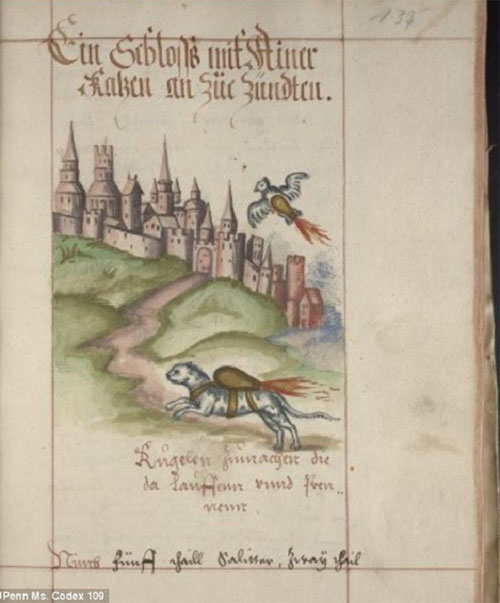 137
Ein Schloss mit Ainer
Katzen an züe zündten.
Kugelen zumachen die
da lauffenn vnnd Pren-
nenn.
Nimb fünff thaill Salitter, zway theil
Penn Ms. Codex 109